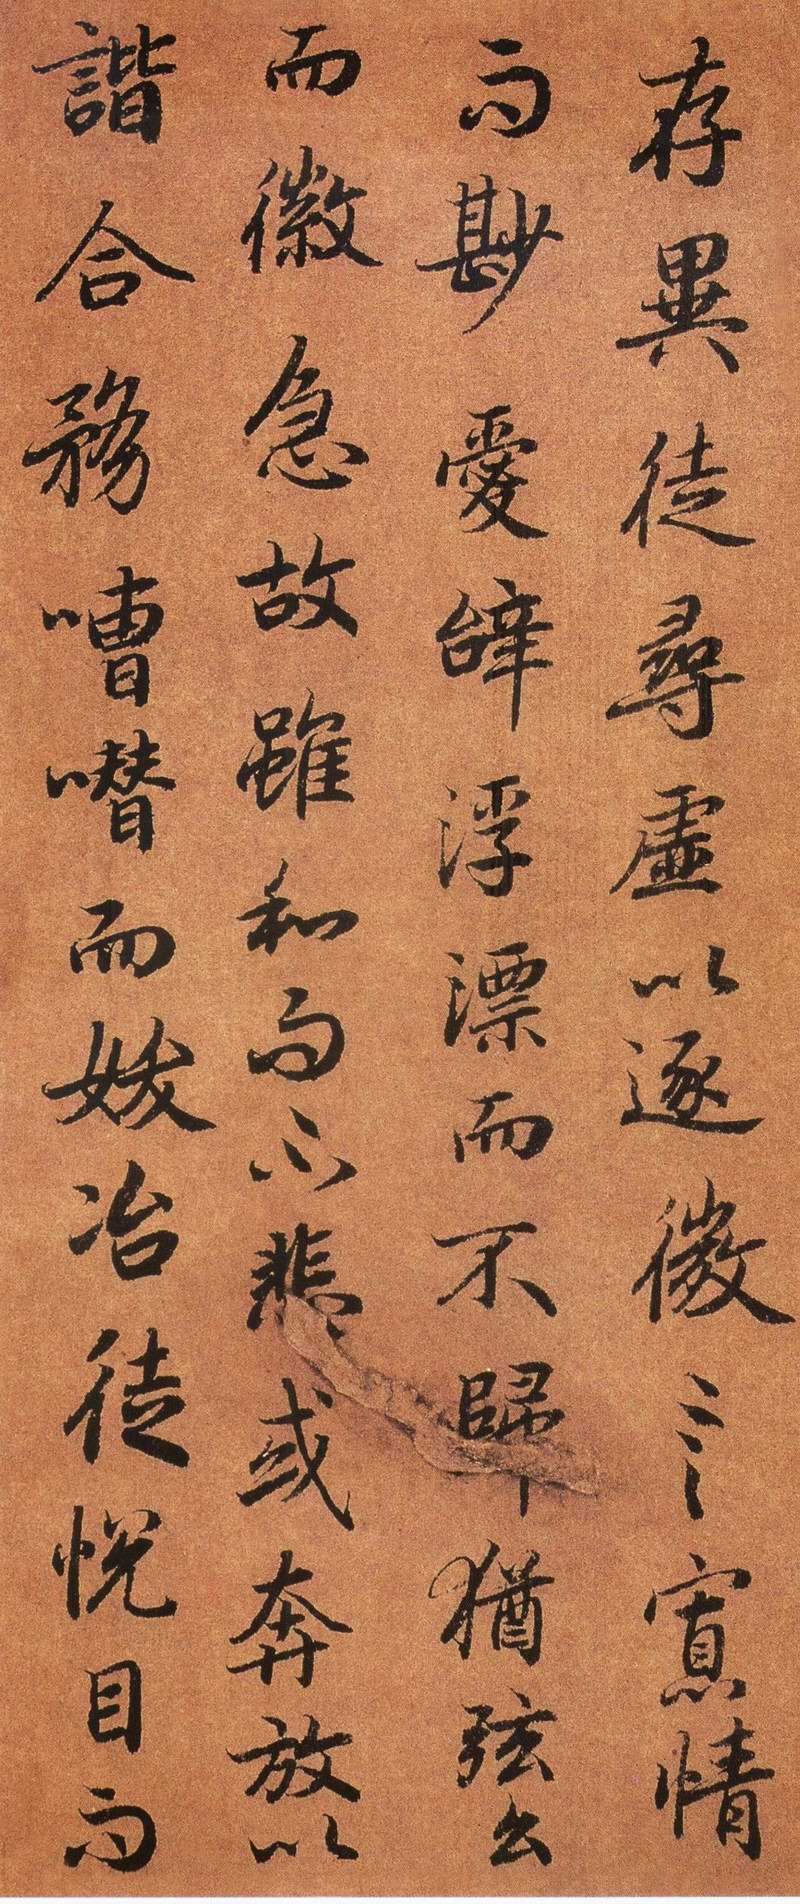 存異徒尋虛以逐微言寡情
而尠愛辝浮漂而不歸猶弦么
而徽急故雖和而不悲或奔放以
諧合務嘈囋而妖冶徒悅目而